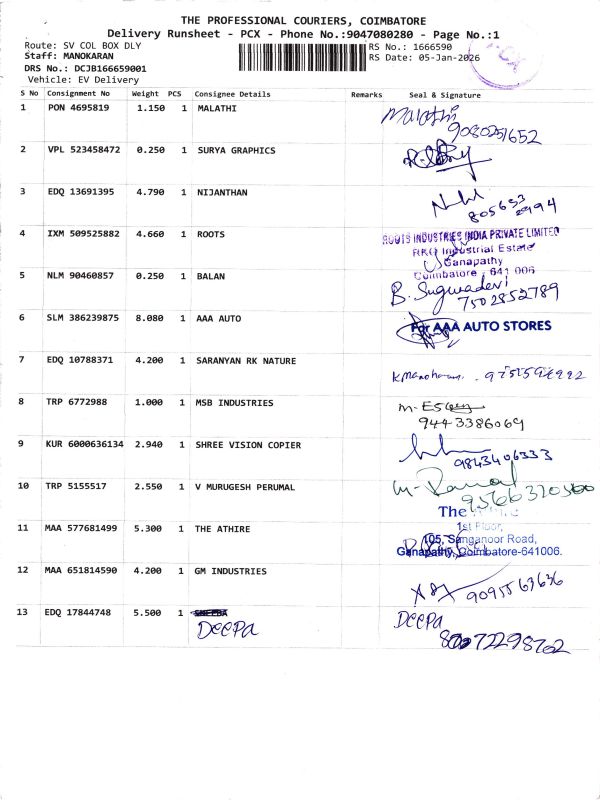 THE PROFESSIONAL COURIERS, COIMBATORE
Delivery Runsheet - PCX - Phone No.:9047080280 - Page No.:1
Route: SV COL BOX DLY
Staff: MANOKARAN
DRS No.: DCJB166659001
Vehicle: EV Delivery
RS No.: 1666590
RS Date: 05-Jan-2026
PCX
S No Consignment No Weight PCS Consignee Details Remarks Seal & Signature
1 PON 4695819 1.150 1 MALATHI Malathi
2 VPL 523458472 0.250 1 SURYA GRAPHICS
3 EDQ 13691395 4.790 1 NIJANTHAN
4 IXM 509525882 4.660 1 ROOTS
ROOTS INDUSTRIES INDIA PRIVATE LIMITED
RKG Industrial Estate
Ganapathy
Coimbatore - 641 006
5 NLM 90460857 0.250 1 BALAN B.
7502852789
6 SLM 386239875 8.080 1 AAA AUTO For AAA AUTO STORES
7 EDQ 10788371 4.200 1 SARANYAN RK NATURE
8 TRP 6772988 1.000 1 MSB INDUSTRIES
9443386069
9 KUR 6000636134 2.940 1 SHREE VISION COPIER
9843406333
10 TRP 5155517 2.550 1 V MURUGESH PERUMAL
11 MAA 577681499 5.300 1 THE ATHIRE The
1st Floor,
105, Sanganoor Road,
Ganapathy, Coimbatore-641006.
12 MAA 651814590 4.200 1 GM INDUSTRIES
9095563636
13 EDQ 17844748 5.500 1
Deepa Deepa